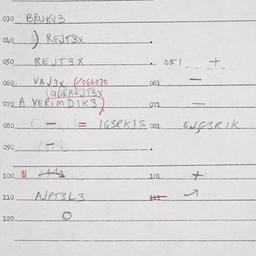 030 BRUKV3
040 REJT3X
050 REJT3X 051 +
060 VAJ3X V066070 061 —
(aDEREJT3X
070 A VERIMDIK3 071 —
080 — = IG3RKIS 081 EJG3RIK
090 —
100 $ 101 +
110 AJPT3L3 111 →
120 O